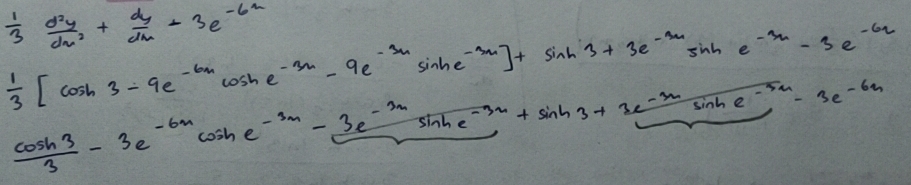 1/3 d²y/dx² + dy/dx - 3e^-6x
1/3 [ cosh 3 - 9e^-6x cosh e^-3x - 9e^-3x sinh e^-3x ] + sinh 3 + 3e^-3x sinh e^-3x - 3e^-6x
cosh 3/3 - 3e^-6x cosh e^-3x - 3e^-3x sinh e^-3x + sinh 3 + 3e^-3x sinh e^-3x - 3e^-6x